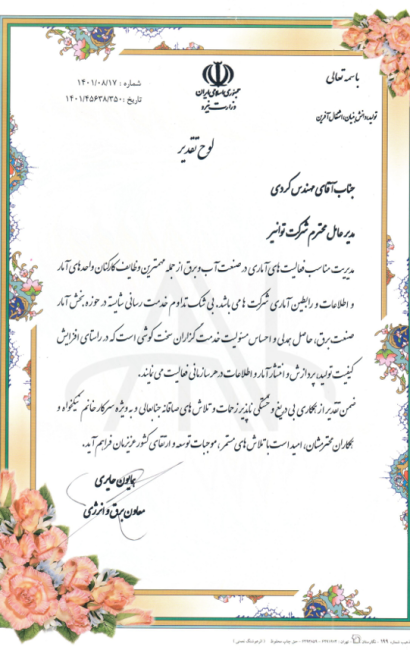 باسمه تعالی
جمهوری اسلامی ایران
وزارت نیرو
شماره : ۱۴۰۱/۰۸/۱۷
تاریخ : ۱۴۰۱/۴۵۶۳۸/۳۵۰
تولید، دانش بنیان، اشتغال آفرین
لوح تقدیر
جناب آقای مهندس کردی
مدیر عامل محترم شرکت توانیر
مدیریت مناسب فعالیت های آماری در صنعت آب و برق از جمله مهمترین وظایف کارکنان واحدهای آمار
و اطلاعات و رابطین آماری شرکت ها می باشد. بی شک تداوم خدمت رسانی شایسته در حوزه بخش آمار
صنعت برق، حاصل همدلی و احساس مسئولیت خدمت گزاران سخت کوشی است که در راستای افزایش
کیفیت تولید، پردازش و انتشار آمار و اطلاعات در هر سازمانی فعالیت می نمایند.
ضمن تقدیر از همکاری بی دریغ و خستگی ناپذیر زحمات و تلاش های صادقانه جنابعالی و به ویژه سرکار خانم نیکخواه و
همکاران محترمشان، امید است با تلاش های مستمر، موجبات توسعه و ارتقای کشور عزیزمان فراهم آید.
همایون حایری
معاون برق و انرژی